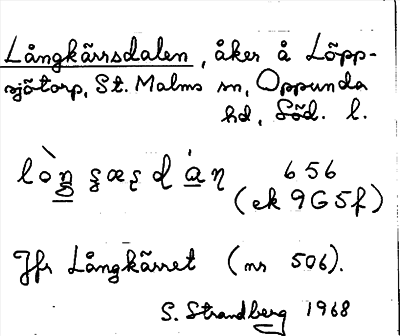 Långkärrsdalen, åker å Löpp-
sjötorp, St. Malms sn, Oppunda
hd, Söd. l.
656
(ek 9G5f)
Jfr Långkärret (nr 506).
S. Strandberg 1968